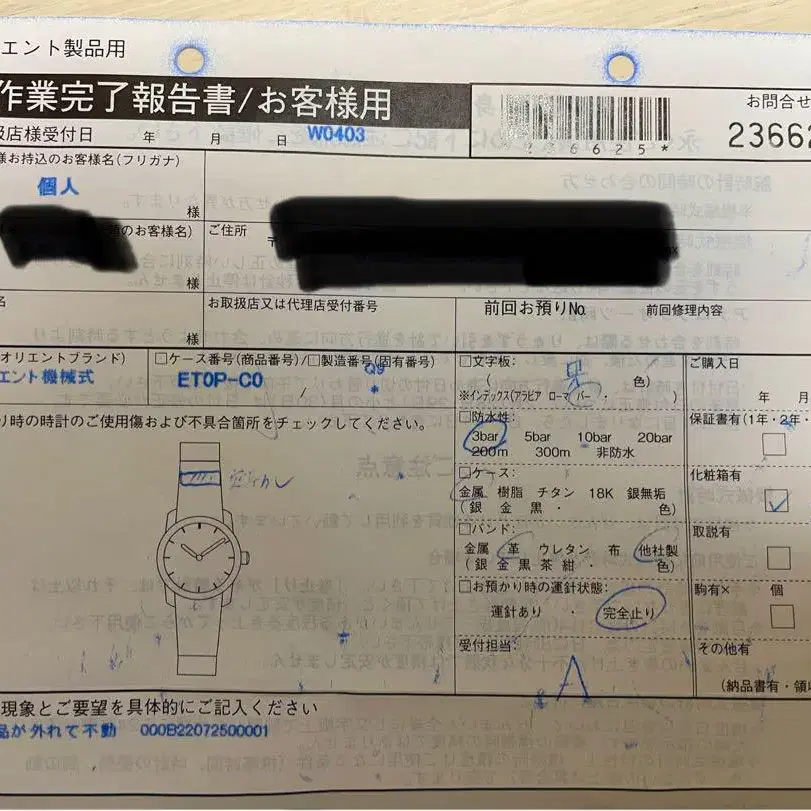 エント製品用
作業完了報告書/お客様用
お問合せ
*236625*
23662
扱店様受付日 年 月 日 W0403
様お持込のお客様名(フリガナ)
個人
様
のお客様名)
ご住所
〒
様
名
様
お取扱店又は代理店受付番号
前回お預りNo.
前回修理内容
オリエントブランド)
エント機械式
□ケース番号(商品番号)/□製造番号(固有番号)
ET0P-C0 / Q9
*
□文字板: 黒
( 色)
※インデックス(アラビア ローマ バー ・ )
ご購入日
年 月
り時の時計のご使用傷および不具合箇所をチェックしてください。
□防水性:
3bar 5bar 10bar 20bar
200m 300m 非防水
保証書有(1年・2年・
□ケース:
金属 樹脂 チタン 18K 銀無垢
(銀 金 黒 ・ 色)
化粧箱有
□バンド:
金属 革 ウレタン 布 他社製
(銀 金 黒 茶 紺 ・ 色)
取説有
□お預かり時の運針状態:
運針あり ・ 完全止り
駒有× 個
受付担当:
A
その他有
(納品書有・領収
現象とご要望を具体的にご記入ください
品が外れて不動 000B22072500001